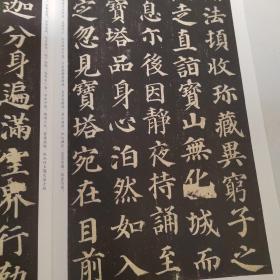 法頓收珎藏異窮子之
走直詣寶山無化城而
尒後因靜夜持誦至
寶塔品身心泊然如入
定忽見寶塔宛在目前
迦分身遍滿空界行勤